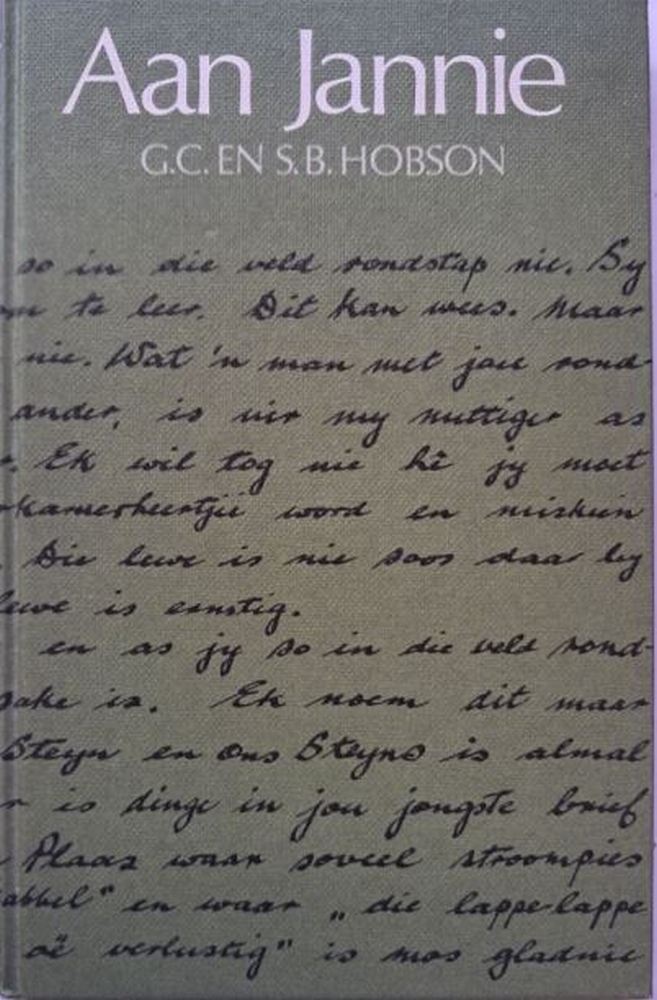 Aan Jannie
G.C. EN S.B. HOBSON
so in die veld rondstap nie. Sy
te leer. Dit kan wees. Maar
nie. Wat 'n man met jou rond-
ander, is vir my nuttiger as
Ek wil tog nie hê jy moet
word en miskien
Die lewe is nie soos daar by
lewe is ernstig.
en as jy so in die veld rond-
sake is. Ek noem dit maar
Steyn en ons Steyns is almal
r is dinge in jou jongste brief
Plaas waar soveel stroompies
abbel" en waar „die lappe-lappe
oë verlustig" is mos gladnie